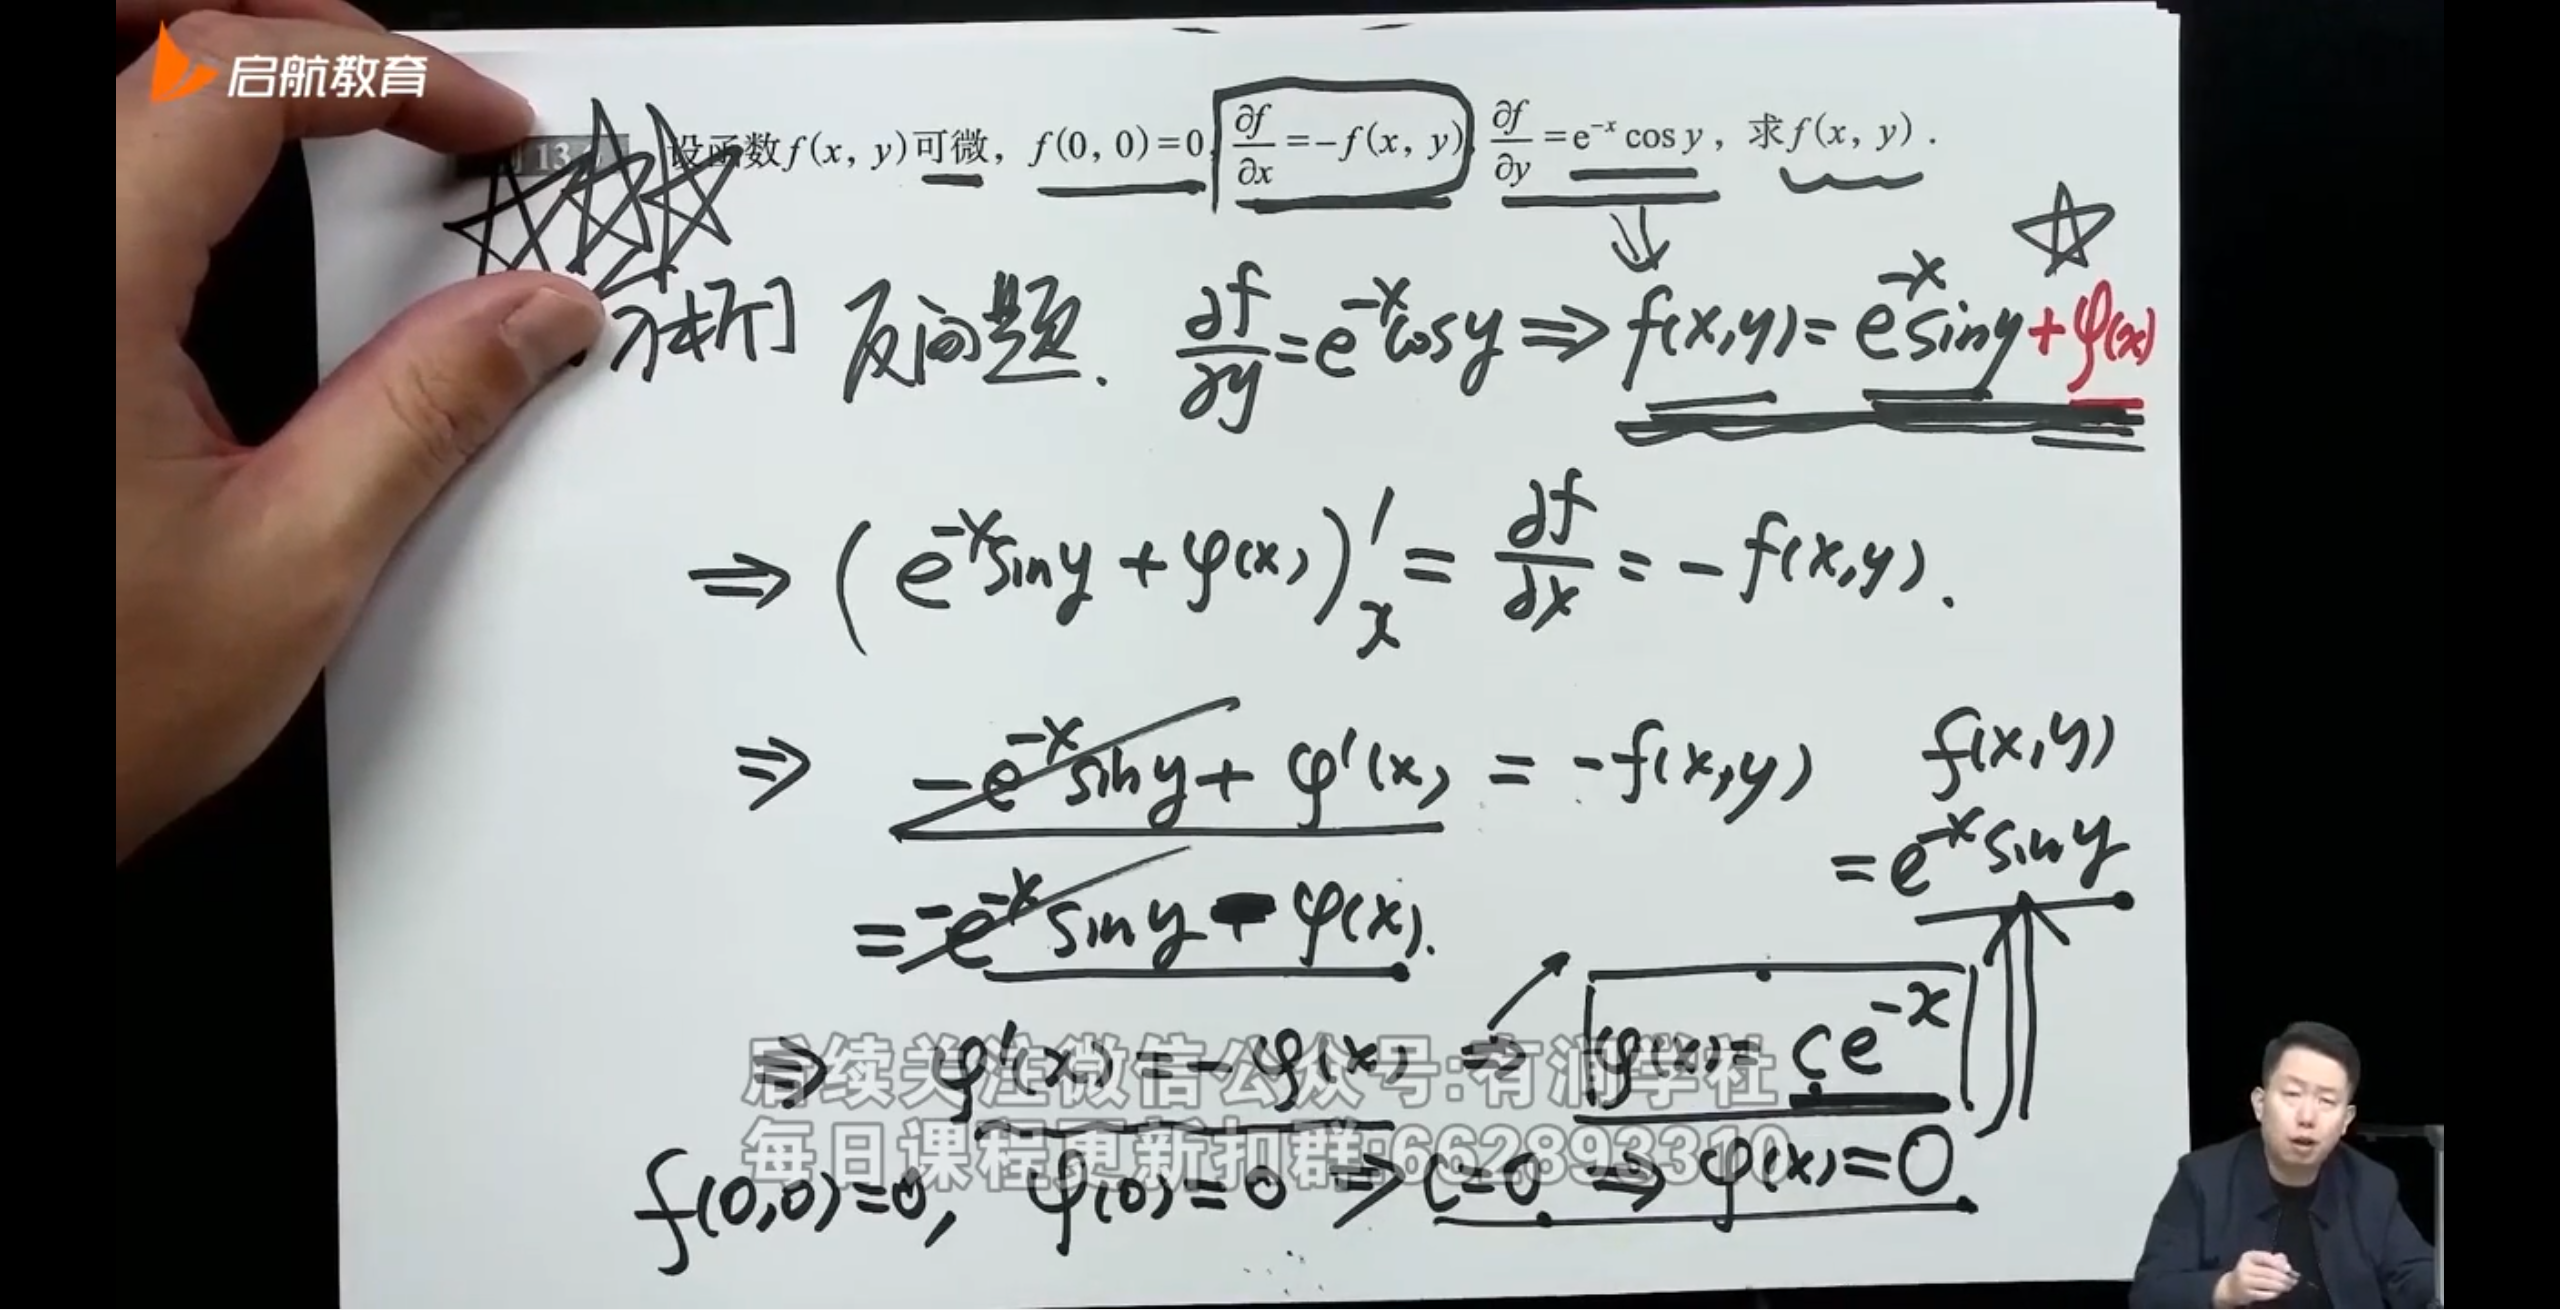 启航教育
设函数f(x, y)可微, f(0, 0)=0, ∂f/∂x=-f(x, y), ∂f/∂y=e^{-x} cos y, 求f(x, y).
反问题. ∂f/∂y=e^{-x}cosy⇒f(x,y)=e^{-x}siny+φ(x)
⇒(e^{-x}siny+φ(x))'_x=∂f/∂x=-f(x,y).
⇒ -e^{-x}siny+φ'(x)=-f(x,y)
=-e^{-x}siny-φ(x).
f(x,y)
=e^{-x}siny
⇒ φ'(x)=-φ(x) ⇒ φ(x)=ce^{-x}
后续关注微信公众号:有润学社
每日课程更新扣群:662893310
f(0,0)=0, φ(0)=0⇒c=0⇒φ(x)=0